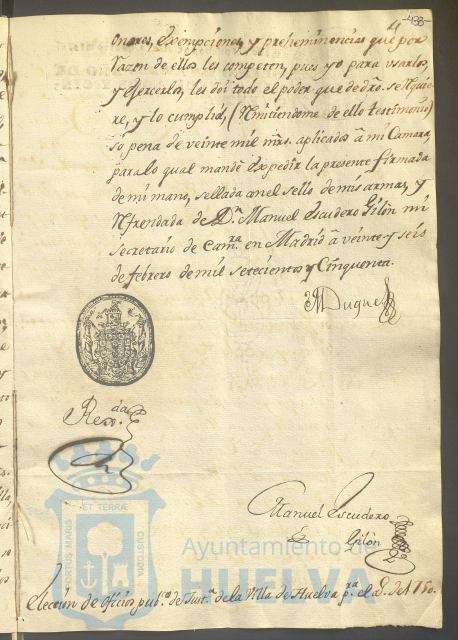 438
4
onores, exempciones, y preheminencias que por
razon de ellos les competen, pues yo para usarlos,
y exercerlos, les doi todo el poder que de dro. se requie
re, y lo cumplid, (Remitiendome de ello testimonio)
só pena de veinte mil mrs. aplicados â mi Camara,
para lo qual mandè expedir la presente firmada
de mi mano, sellada con el sello de mis armas, y
Refrendada de Dn. Manuel Escudero Gilòn mi
secretario de Camra. en Madrid â veinte y seis
de febrero de mil setecientos y Cinquenta.
El Duque
Rexda.
Manuel Escudero
Gilòn
PORTUS MARIS ET TERRÆ CUSTODIA
Ayuntamiento de
HUELVA
Elección de oficios pubcos. de Justa. de la Villa de Huelva pra. el a. de 1750.